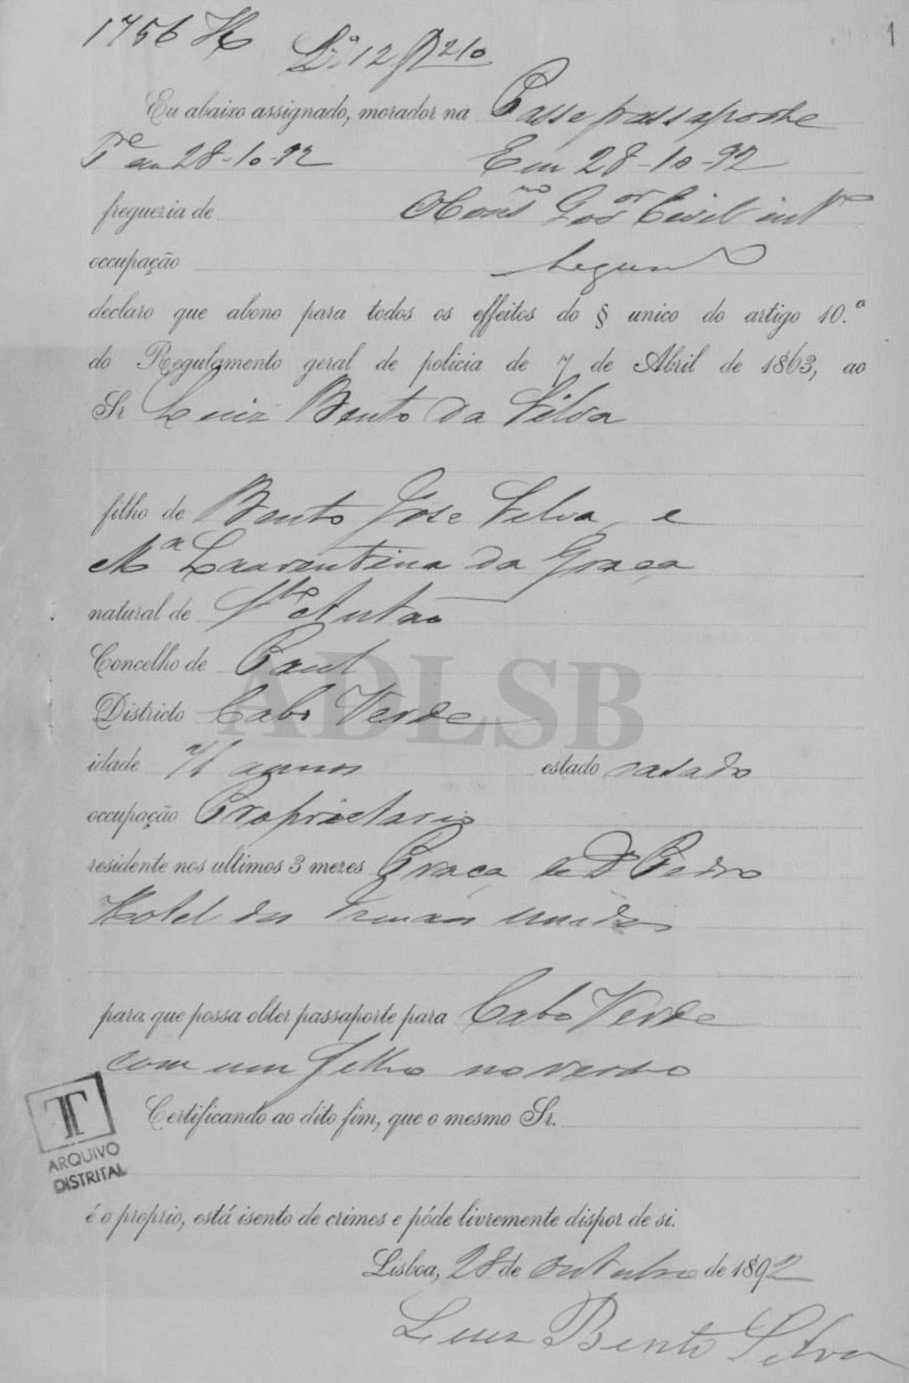 1756 H
L.º 12 f 210
1
Eu abaixo assignado, morador na Passe passaporte
28-10-92 Em 28-10-92
freguezia de Gov.or Civil int.º
occupação
declaro que abono para todos os effeitos do § unico do artigo 10.º
do Regulamento geral de policia de 7 de Abril de 1863, ao
Sr Luiz Bento da Silva
filho de Bento Jose Silva, e
M.ª Laurentina da Graça
natural de S.to Antão
Concelho de Paul
Districto Cabo Verde
idade annos estado casado
occupação Proprietario
residente nos ultimos 3 mezes Praça de D Pedro
Hotel dos Irmãos unidos
para que possa obter passaporte para Cabo Verde
com um filho no verso
Certificando ao dito fim, que o mesmo Sr.
é o proprio, está isento de crimes e póde livremente dispor de si.
Lisboa, 28 de outubro de 1892
Luiz Bento Silva
ADLSB
TT
ARQUIVO
DISTRITAL